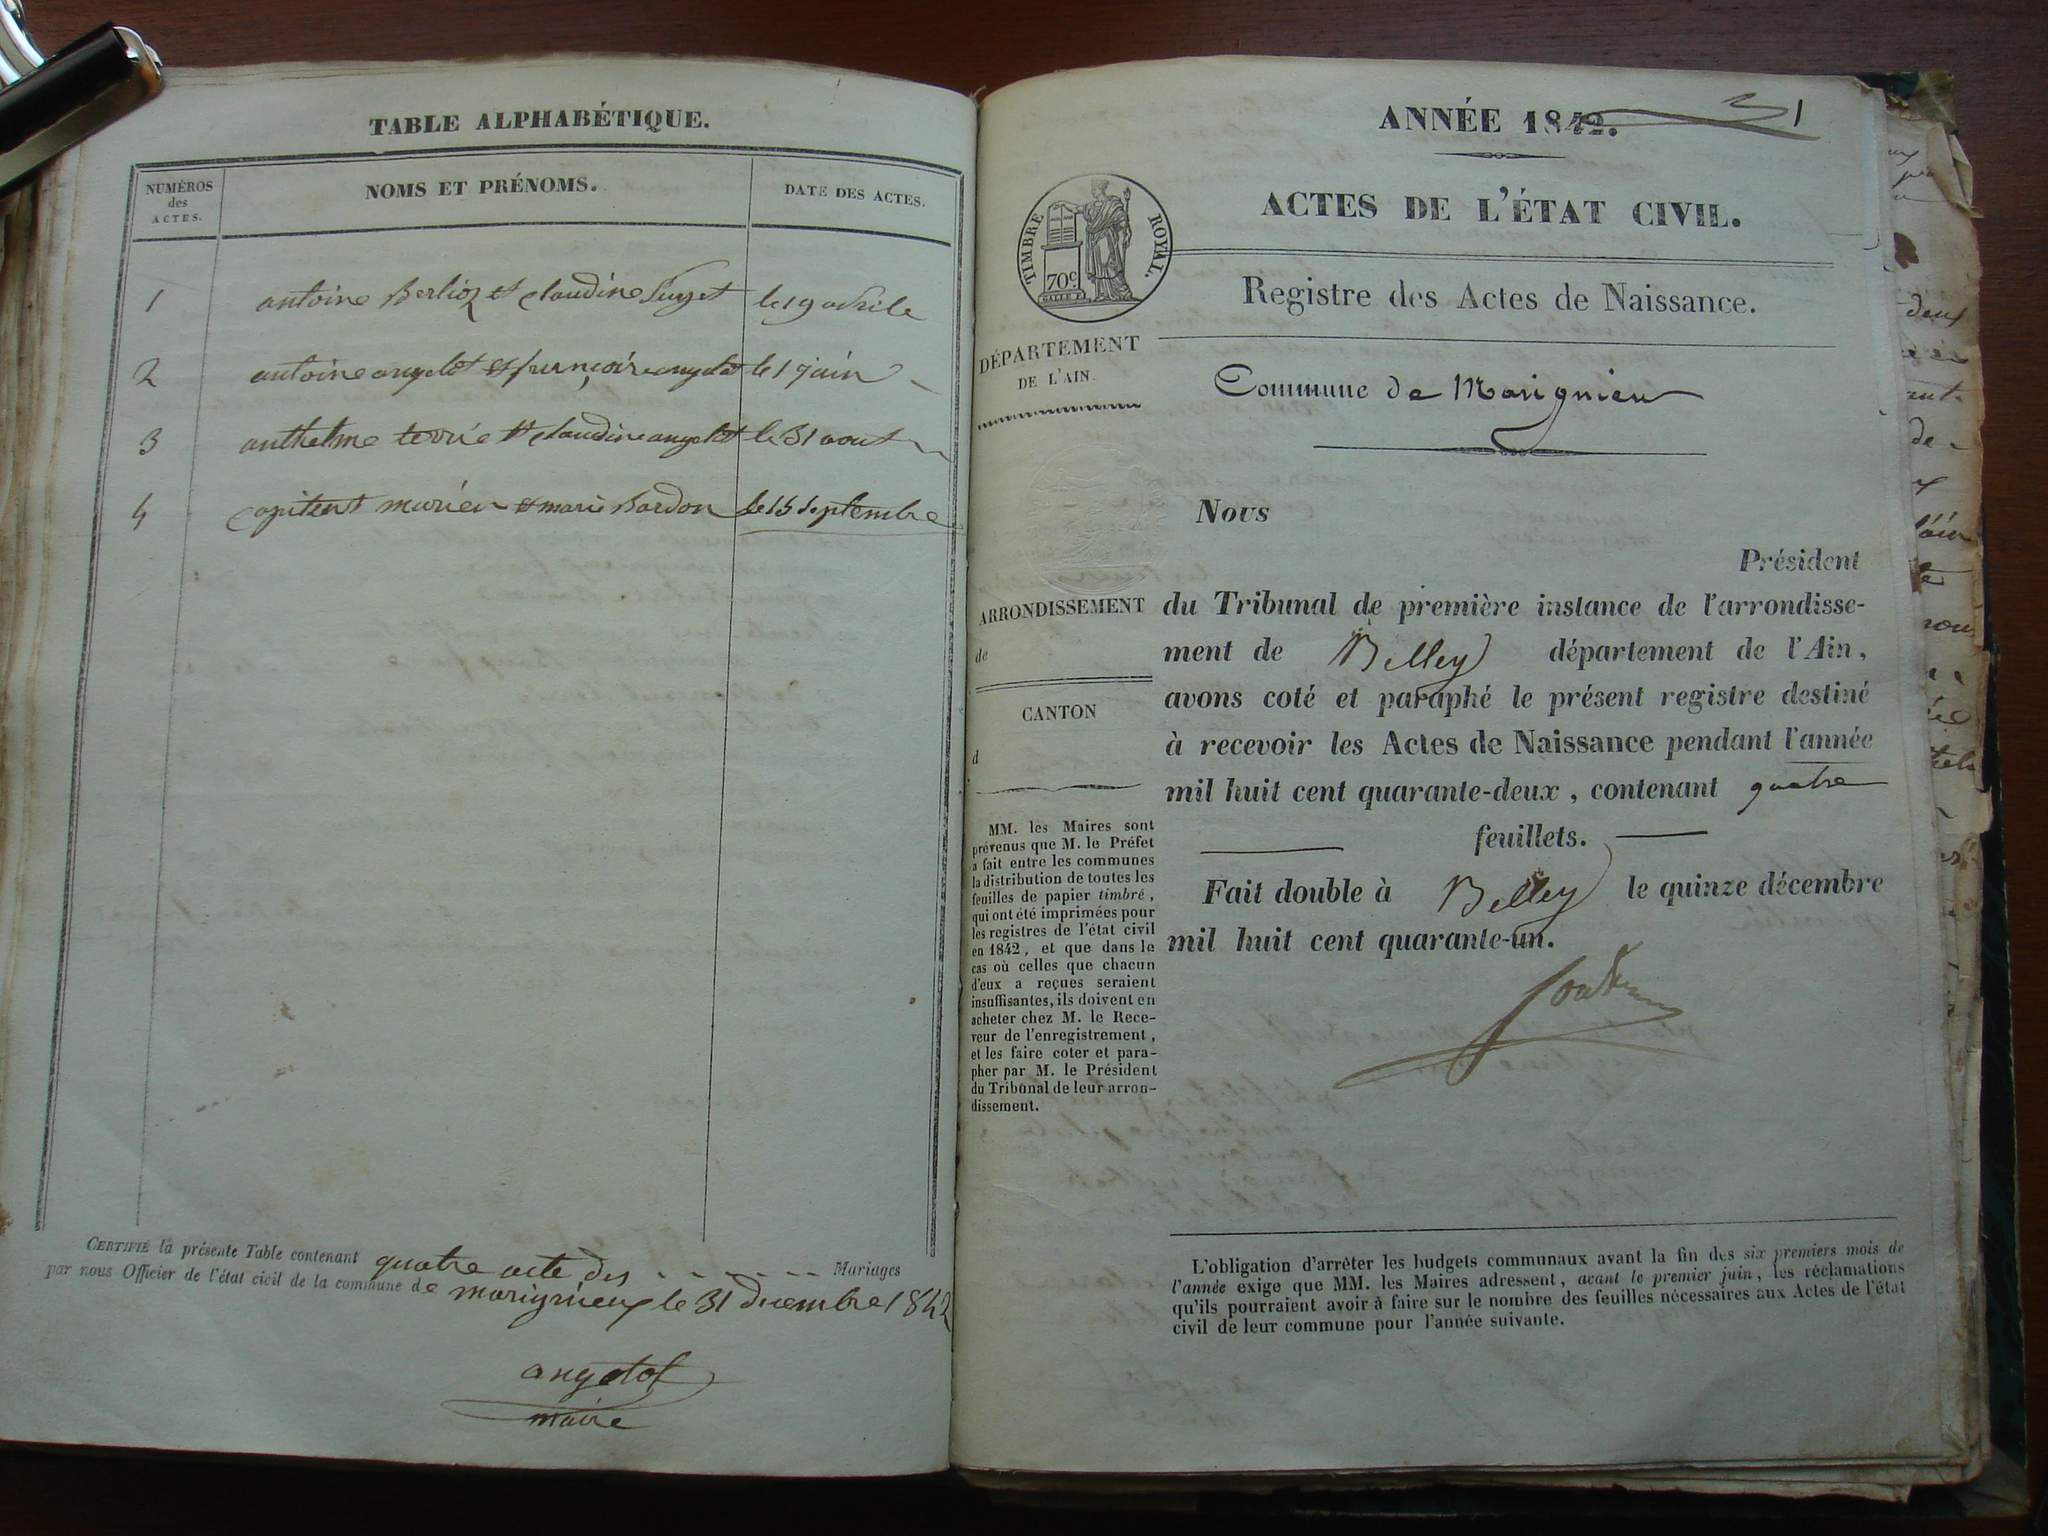 TABLE ALPHABÉTIQUE.
NUMÉROS
des
ACTES.
NOMS ET PRÉNOMS.
DATE DES ACTES.
1 antoine Berlioz et claudine le 19 avrile
2 antoine angelot et françoise angelot le 1 juin
3 anthelme et claudine angelot le 31 aout
4 et marie Bardon le 15 septembre
CERTIFIÉ la présente Table contenant quatre acte des Mariages
par nous Officier de l'état civil de la commune de marignieu le 31 decembre 1842
angelot
maire
ANNÉE 1842.
1
ACTES DE L'ÉTAT CIVIL.
TIMBRE ROYAL.
70c
SALLE F.
Registre des Actes de Naissance.
DÉPARTEMENT
DE L'AIN.
Commune de Marignieu
Nous
Président
ARRONDISSEMENT
de
CANTON
d
du Tribunal de première instance de l'arrondisse-
ment de Belley département de l'Ain,
avons coté et paraphé le présent registre destiné
à recevoir les Actes de Naissance pendant l'année
mil huit cent quarante-deux, contenant quatre
feuillets.
Fait double à Belley le quinze décembre
mil huit cent quarante-un.
MM. les Maires sont
prévenus que M. le Préfet
a fait entre les communes
la distribution de toutes les
feuilles de papier timbré,
qui ont été imprimées pour
les registres de l'état civil
en 1842, et que dans le
cas où celles que chacun
d'eux a reçues seraient
insuffisantes, ils doivent en
acheter chez M. le Rece-
veur de l'enregistrement,
et les faire coter et para-
pher par M. le Président
du Tribunal de leur arron-
dissement.
L'obligation d'arrêter les budgets communaux avant la fin des six premiers mois de
l'année exige que MM. les Maires adressent, avant le premier juin, les réclamations
qu'ils pourraient avoir à faire sur le nombre des feuilles nécessaires aux Actes de l'état
civil de leur commune pour l'année suivante.